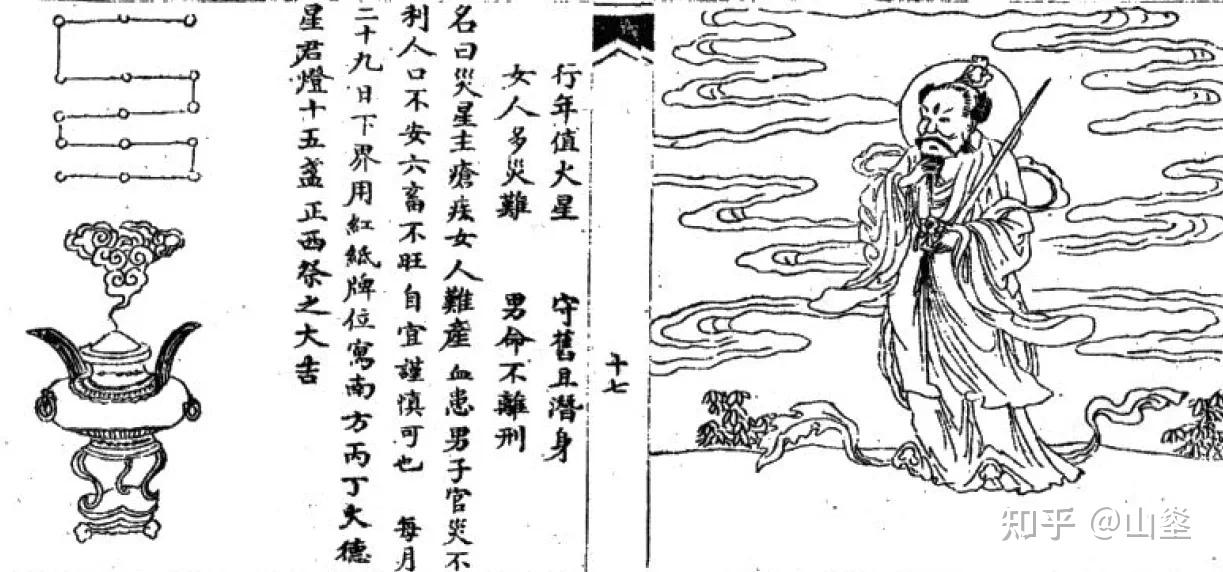 十七
行年值火星　守舊且潛身
女人多災難　男命不離刑
名曰災星主瘡疾女人難產血患男子官災不
利人口不安六畜不旺自宜謹慎可也　每月
二十九日下界用紅紙牌位寫南方丙丁火德
星君燈十五盞正西祭之大吉
知乎 @山